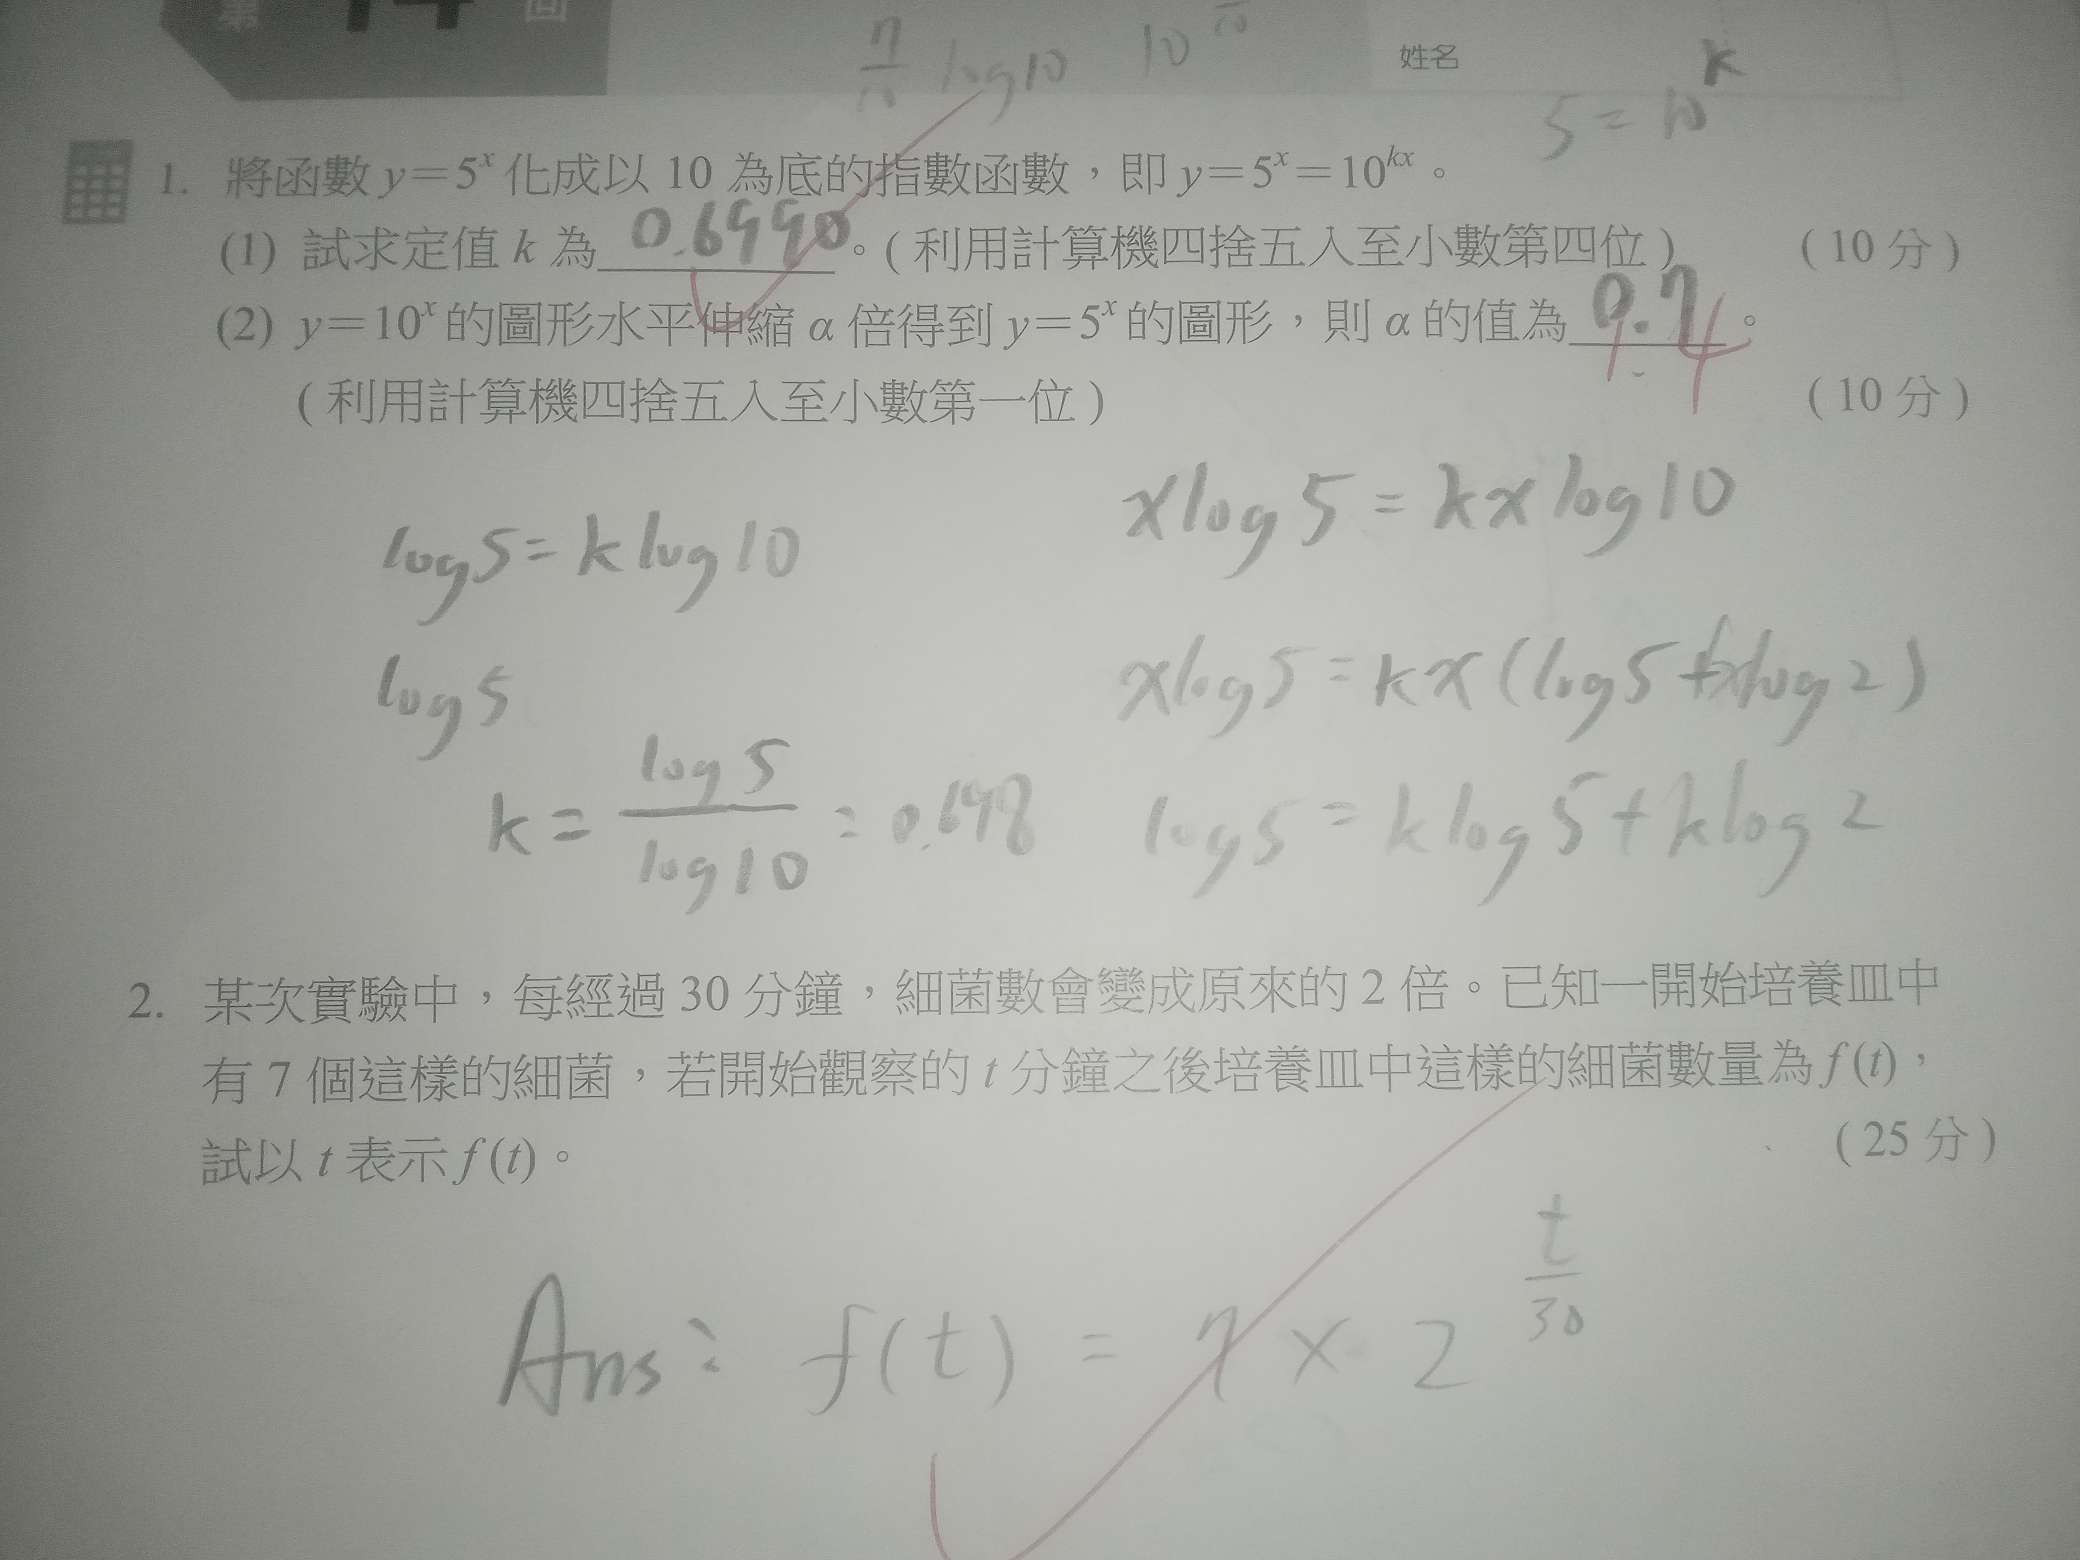 第 14 回
7/10 log10 10 姓名
5=10^k
1. 將函數 y=5^x 化成以 10 為底的指數函數，即 y=5^x=10^kx。
(1) 試求定值 k 為 0.6990。(利用計算機四捨五入至小數第四位) (10 分)
(2) y=10^x 的圖形水平伸縮 α 倍得到 y=5^x 的圖形，則 α 的值為 0.7。
1.4
(利用計算機四捨五入至小數第一位) (10 分)
log5=klog10
xlog5=kxlog10
log5
xlog5=kx(log5+log2)
k=log5/log10=0.698
log5=klog5+klog2
2. 某次實驗中，每經過 30 分鐘，細菌數會變成原來的 2 倍。已知一開始培養皿中
有 7 個這樣的細菌，若開始觀察的 t 分鐘之後培養皿中這樣的細菌數量為 f(t)，
試以 t 表示 f(t)。 (25 分)
Ans: f(t) = 7 × 2^t/30